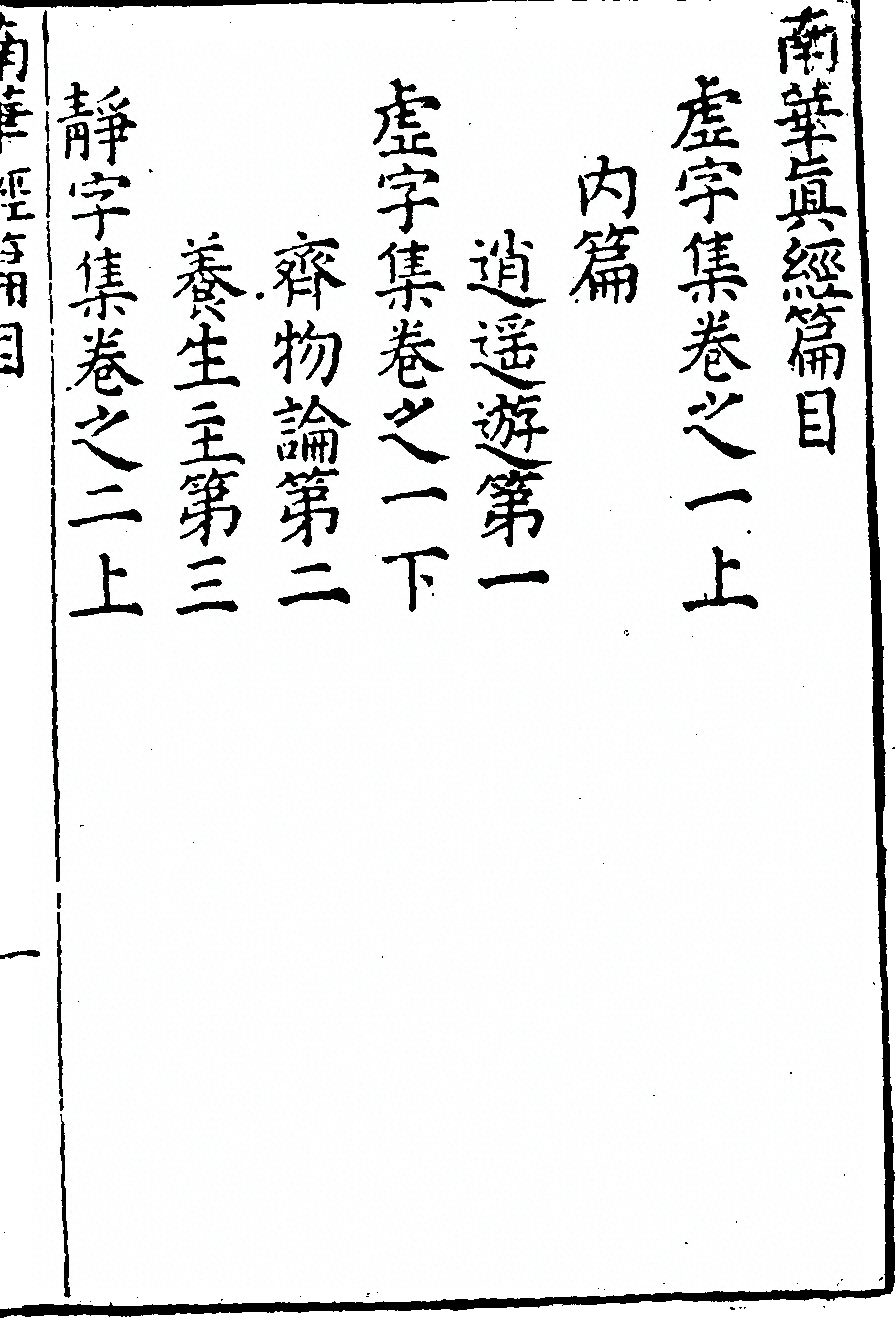 南華眞經篇目
虛字集卷之一上
内篇
逍遥遊第一
虛字集卷之一下
齊物論第二
養生主第三
靜字集卷之二上
南華經篇目
一